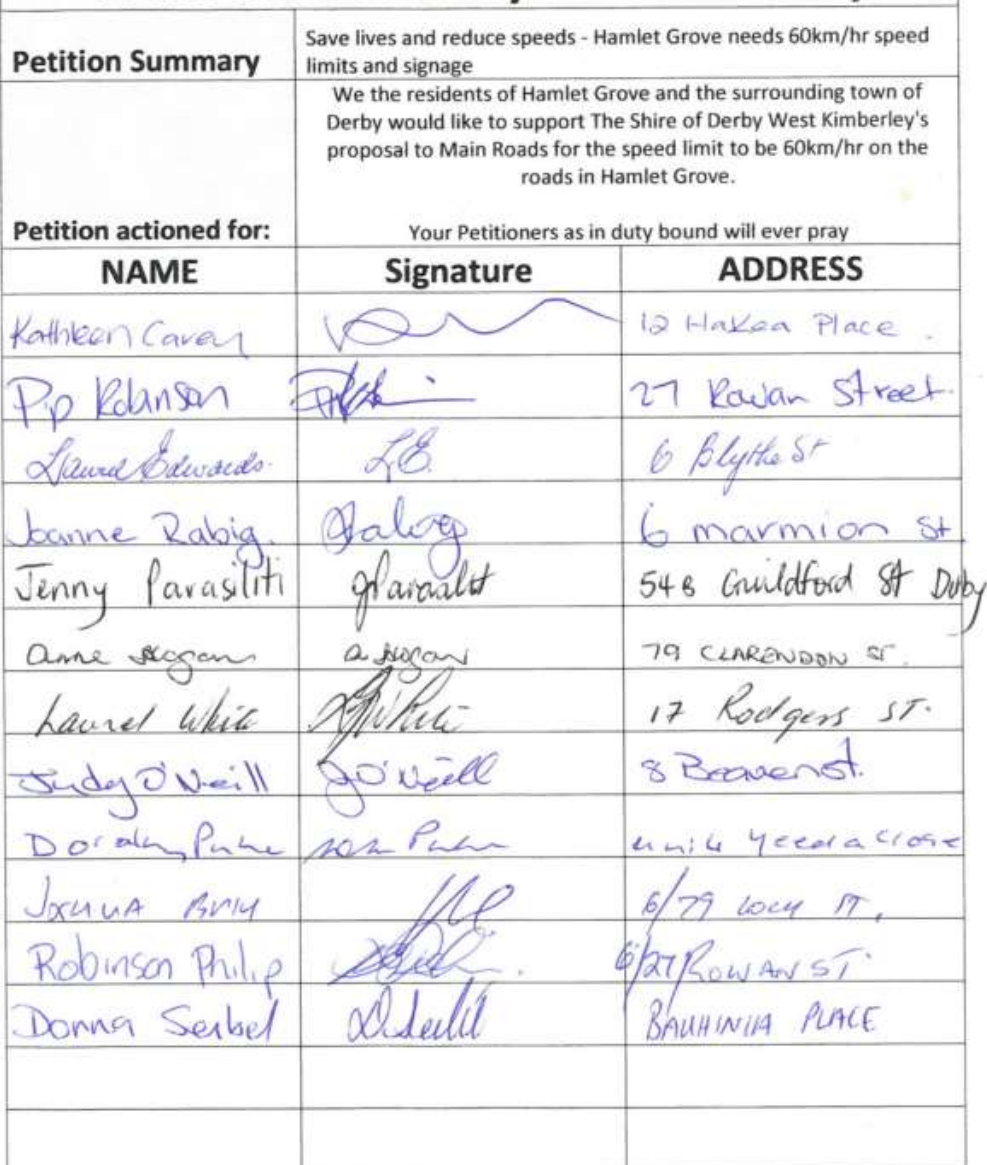 Petition Summary
Save lives and reduce speeds - Hamlet Grove needs 60km/hr speed
limits and signage
We the residents of Hamlet Grove and the surrounding town of
Derby would like to support The Shire of Derby West Kimberley's
proposal to Main Roads for the speed limit to be 60km/hr on the
roads in Hamlet Grove.
Petition actioned for:
Your Petitioners as in duty bound will ever pray
NAME Signature ADDRESS
Kathleen 12 Hakea Place
Pip Robinson 27 Rowan Street
Laurel Edwards L.E. 6 Blythe St
Joanne Rabig 6 marmion st
Jenny Parasiliti 54B Guildford St Derby
Anne Hogan a Hogan 79 CLARENDON ST
Laurel White 17 Rodgers ST.
Judy O'Neill J O'Neill 8 Beaven st.
Yeeda Close
6/79
Robinson Philip 6/27 ROWAN ST
Donna BAUHINIA PLACE